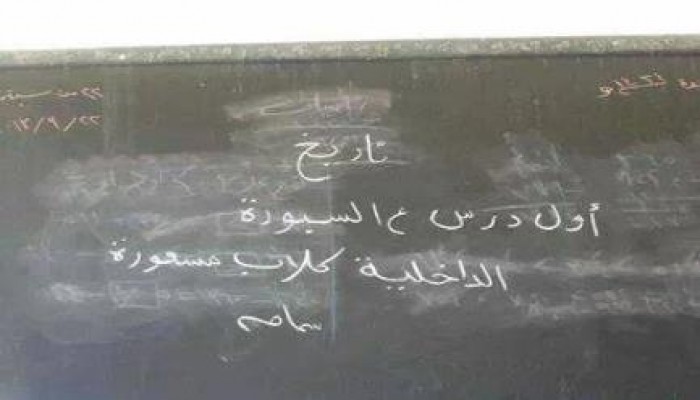 ٢٢ من سبتمبر
١٣/٩/٢٢
تاريخ
أول درس ع السبورة
الداخلية كلاب مسعورة
سماح